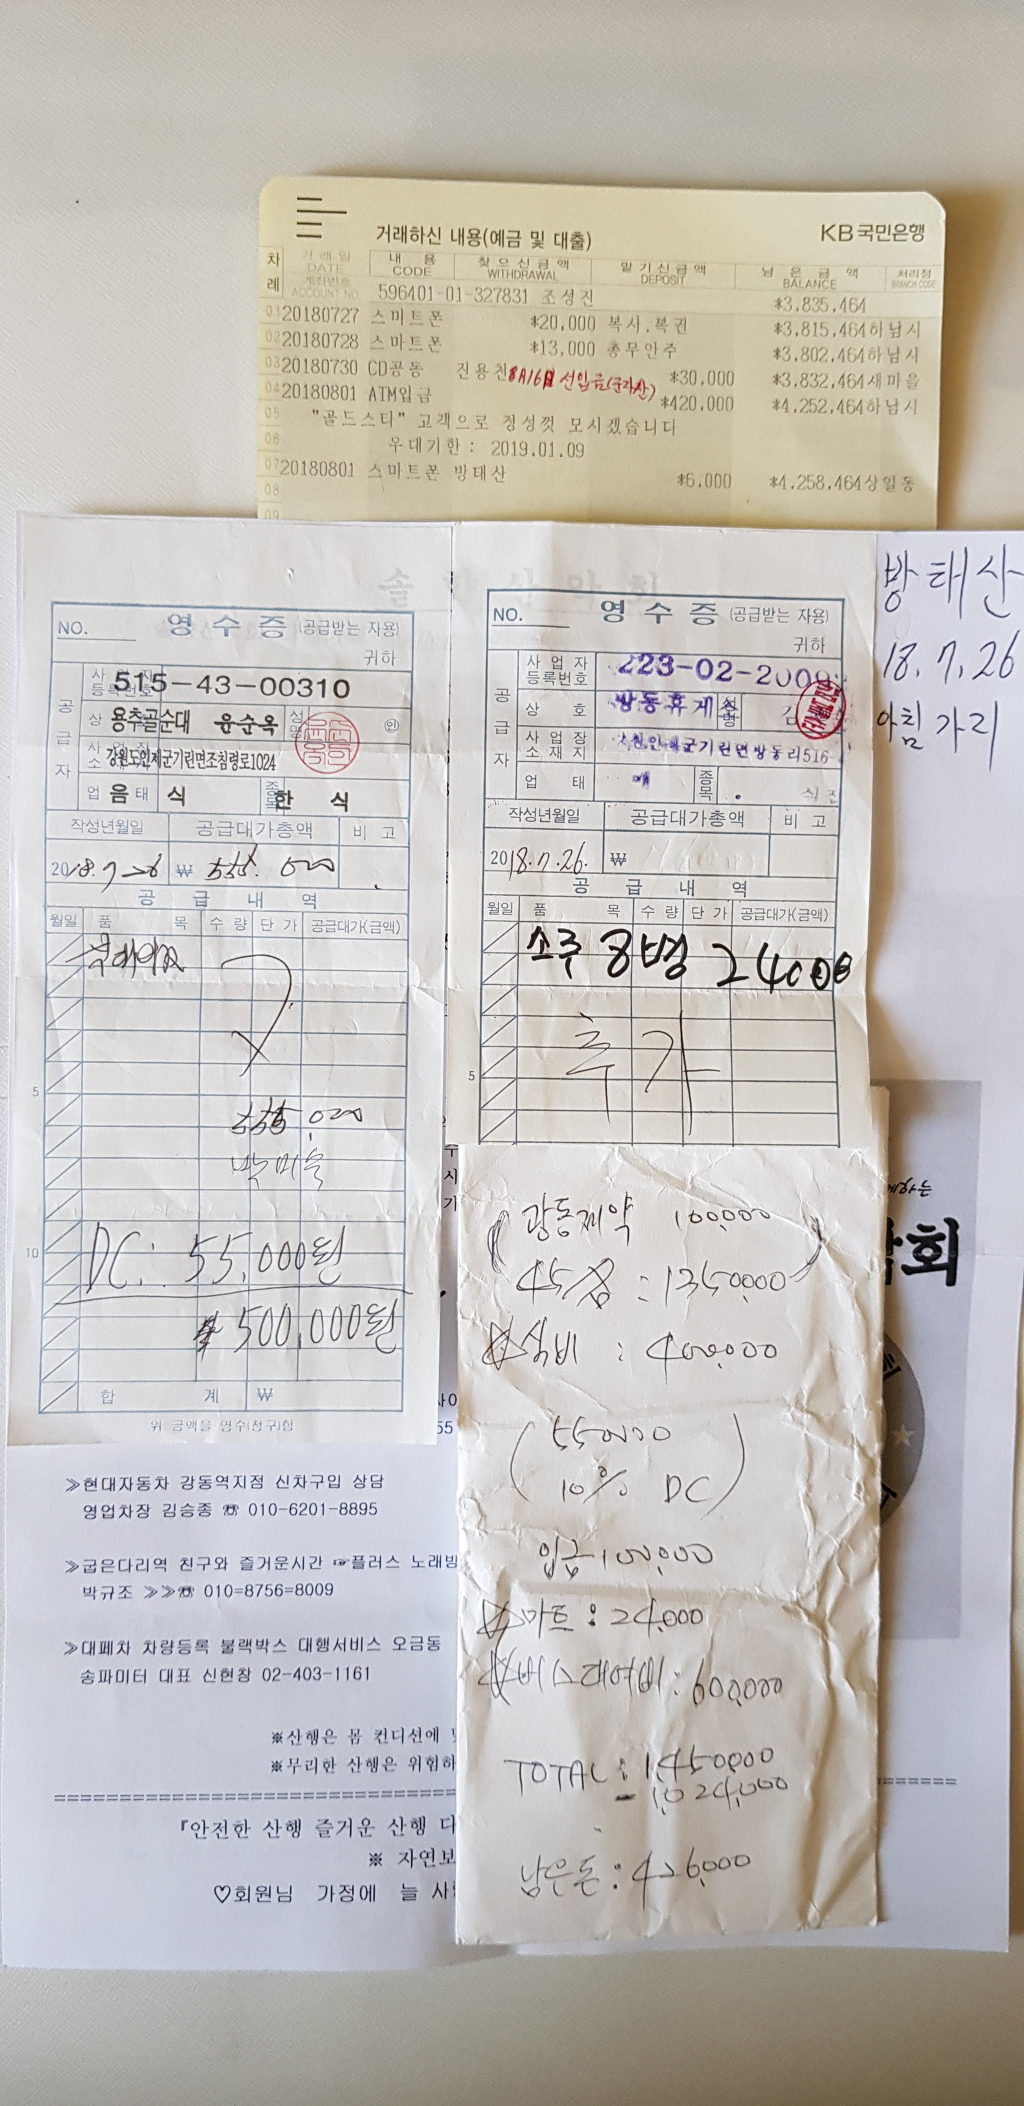 거래하신 내용(예금 및 대출)
KB국민은행
차례 거래일 DATE 계좌번호 ACCOUNT NO 내 용 CODE 찾으신금액 WITHDRAWAL 맡기신금액 DEPOSIT 남은금액 BALANCE 처리점 BRANCH CODE
596401-01-327831 조성진 *3,835,464
01 20180727 스마트폰 *20,000 복사.복권 *3,815,464 하남시
02 20180728 스마트폰 *13,000 총무안주 *3,802,464 하남시
03 20180730 CD공동 전용찬 8月16日 선입금(군자산) *30,000 *3,832,464 새마을
04 20180801 ATM입금 *420,000 *4,252,464 하남시
05 "골드스타" 고객으로 정성껏 모시겠습니다
06 우대기한 : 2019.01.09
07 20180801 스마트폰 방태산 *6,000 *4,258,464 상일동
08
09
방태산
18.7.26
아침가리
NO.
영 수 증 (공급받는 자용)
귀하
공급자
사업자등록번호 515-43-00310
상 용추골순대 윤순옥 성명 인
사업장소 강원도인제군기린면조침령로1024
업태 음식 종목 한식
작성년월일 공급대가총액 비고
2018.7.26 ₩ 555,000
공 급 내 역
월일 품 목 수량 단가 공급대가(금액)
5
555,000
DC: 55,000원
10
₩ 500,000원
합 계 ₩
위 금액을 영수(청구)함
NO.
영 수 증 (공급받는 자용)
귀하
공급자
사업자등록번호 223-02-2009
상 호 방동휴게소 성명 김
사업장소재지 인제군기린면방동리516-
업 태 종목 식
작성년월일 공급대가총액 비고
2018.7.26. ₩
공 급 내 역
월일 품 목 수량 단가 공급대가(금액)
소주 8병 24000
추가
5
(광동제약 100,000)
45명 : 1350,000
☆식비 : 400,000
(550,000
10% DC)
입금 100,000
☆마트 : 24,000
☆버스대여비 : 600,000
TOTAL : 1,450,000
- 1,024,000
남은돈 : 426,000
≫현대자동차 강동역지점 신차구입 상담
영업차장 김승종 ☎ 010-6201-8895
≫굽은다리역 친구와 즐거운시간 ☞플러스 노래방
박규조 ≫≫☎ 010=8756=8009
≫대폐차 차량등록 블랙박스 대행서비스 오금동
송파미터 대표 신현창 02-403-1161
※산행은 몸 컨디션에
※무리한 산행은 위험하
『안전한 산행 즐거운 산행 다
※ 자연보
♡회원님 가정에 늘 사